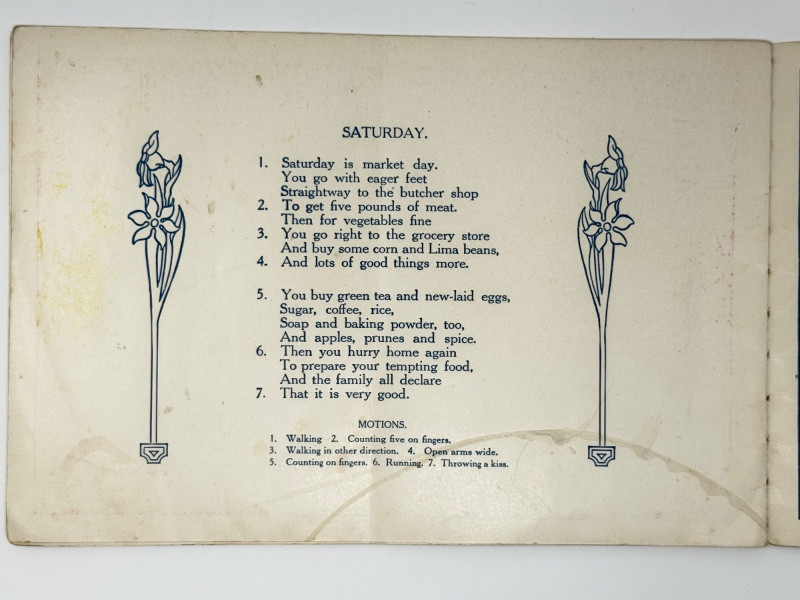 SATURDAY.
1. Saturday is market day.
You go with eager feet
Straightway to the butcher shop
2. To get five pounds of meat.
Then for vegetables fine
3. You go right to the grocery store
And buy some corn and Lima beans,
4. And lots of good things more.
5. You buy green tea and new-laid eggs,
Sugar, coffee, rice,
Soap and baking powder, too,
And apples, prunes and spice.
6. Then you hurry home again
To prepare your tempting food,
And the family all declare
7. That it is very good.
MOTIONS.
1. Walking 2. Counting five on fingers.
3. Walking in other direction. 4. Open arms wide.
5. Counting on fingers. 6. Running. 7. Throwing a kiss.